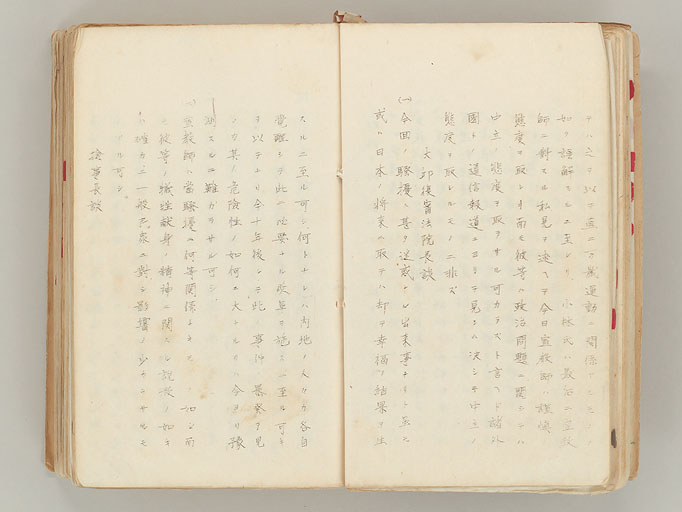 テハ之ヲ以テ直ニ 運動ニ関係アル
如ク誤解スルニ至レリ小林氏ハ最近ニ宣教
師ニ対スル私見ヲ述ヘテ今日宣教師ハ謹慎
態度ヲ取レリ而モ彼等ハ政治問題ニ関シテハ
中立ノ態度ヲ取ラサル可カラスト言ヘト諸外
國ノ通信報道ニヨリテ見ルハ決シテ中立ノ
態度ヲ取レルモノニ非ズ
大邱覆審法院長談
(一)今回ノ騒擾ハ甚タ迷惑ナル出来事ナリト 
或ハ日本ノ将来ニ取テハ却テ幸福ナ結果ヲ生
スルニ至ル可シ何トナレハ内地ノ人々カ各自
覚醒シテ此ノ必要ナル改革ヲ施スニ至ル可キ
ヲ以テナリ今十年後レテ此ノ事件 発ヲ見
ンカ其ノ危険性ノ如何ニ大ナルカハ今ヨリ豫
測スルニ難カラサル可シ
(一)宣教師ハ当騒擾ニ何等関係ナキモ 而
モ彼等ノ犠牲献身ノ精神ニ関スル説教ノ如キ
ハ確カニ一般民衆ニ対シ影響ノ少ナカラサルモ
アル可シ。
検事長談